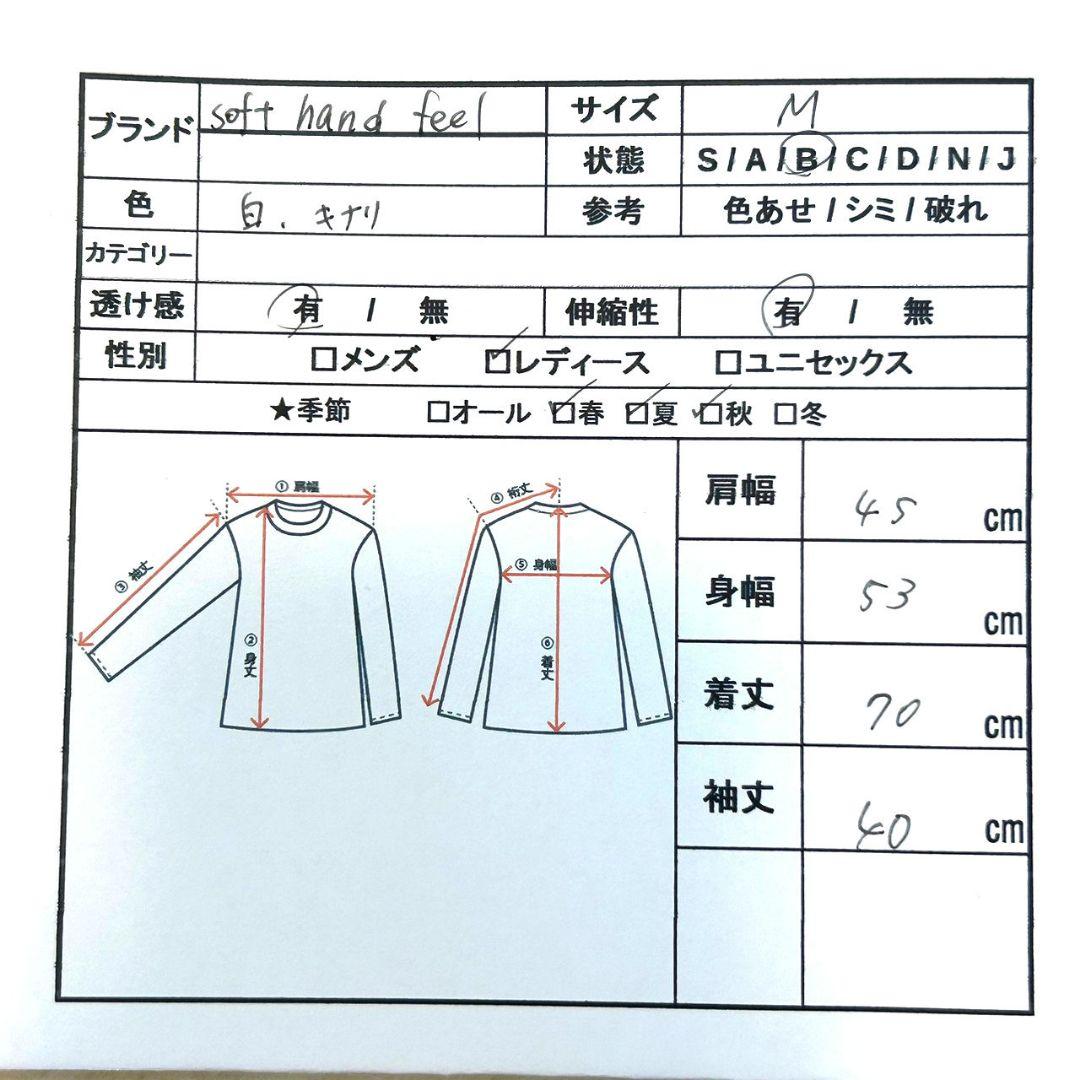 ブランド soft hand feel サイズ M
状態 S / A / B / C / D / N / J
色 白、キナリ 参考 色あせ / シミ / 破れ
カテゴリー
透け感 有 / 無 伸縮性 有 / 無
性別 □メンズ ☑レディース □ユニセックス
★季節 □オール ☑春 ☑夏 ☑秋 □冬
① 肩幅
② 身丈
③ 袖丈
④ 裄丈
⑤ 身幅
⑥ 着丈
肩幅 45 cm
身幅 53 cm
着丈 70 cm
袖丈 40 cm